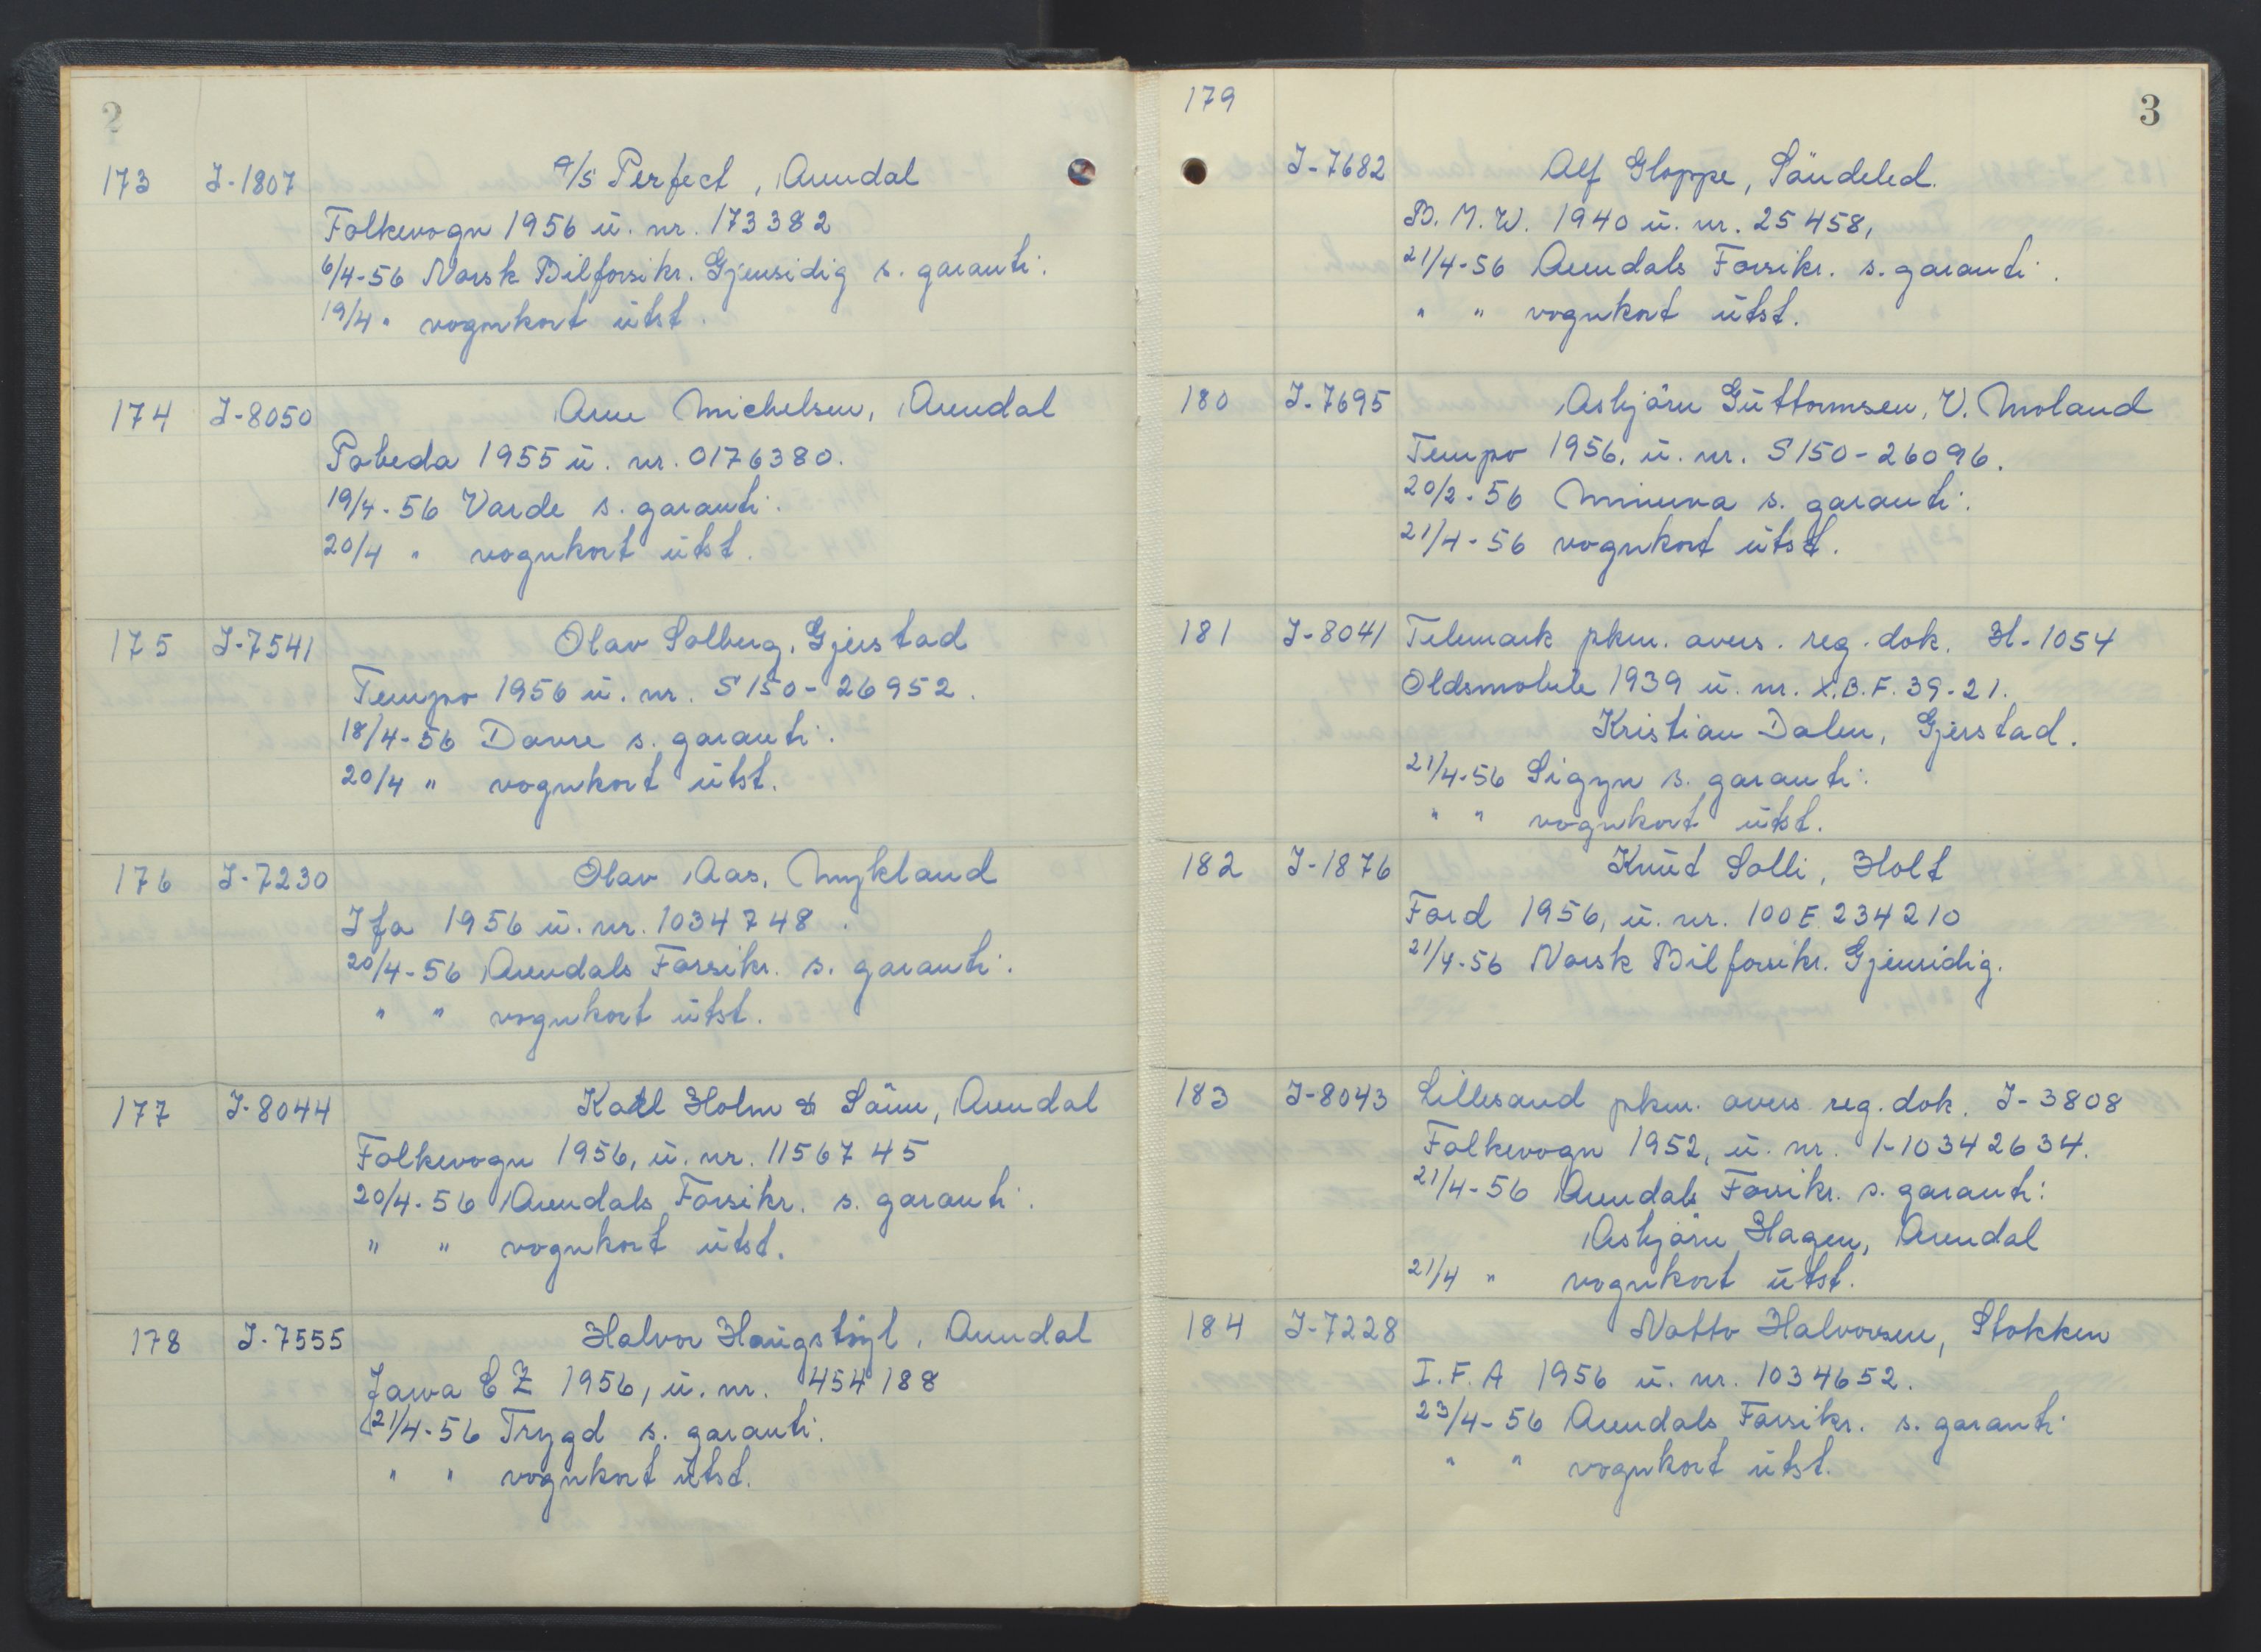 2
173 I-1807 A/S Perfect, Arendal
Folkevogn 1956 u. nr. 173382
6/4-56 Norsk Bilforsikr. Gjensidig s. garanti.
19/4 " vognkort utst.
174 I-8050 Arne Michelsen, Arendal
Pobeda 1955 u. nr. 0176380.
19/4-56 Varde s. garanti.
20/4 " vognkort utst.
175 I-7541 Olav Solberg, Gjerstad
Tempo 1956 u. nr. S 150-26952.
18/4-56 Dovre s. garanti.
20/4 " vognkort utst.
176 I-7230 Olav Aas, Mykland
Ifa 1956 u. nr. 1034748.
20/4-56 Arendals Forsikr. s. garanti.
" " vognkort utst.
177 I-8044 Karl Holm & Sönn, Arendal
Folkevogn 1956, u. nr. 1156745
20/4-56 Arendals Forsikr. s. garanti.
" " vognkort utst.
178 I-7555 Halvor Haugstöyl, Arendal
Jawa C Z 1956, u. nr. 454188
21/4-56 Trygd s. garanti.
" " vognkort utst.
3
179
I-7682 Alf Gloppe, Söndeled.
B. M. W. 1940 u. nr. 25458,
21/4-56 Arendals Forsikr. s. garanti.
" " vognkort utst.
180 I-7695 Asbjörn Guttormsen, V. Moland
Tempo 1956, u. nr. S 150-26096.
20/2-56 Minerva s. garanti.
21/4-56 vognkort utst.
181 I-8041 Telemark pkm. overs. reg. dok. H-1054
Oldsmobile 1939 u. nr. X.B.F. 39-21.
Kristian Dalen, Gjerstad.
21/4-56 Sigyn s. garanti.
" " vognkort utst.
182 I-1876 Knut Solli, Holt
Ford 1956, u. nr. 100 E 234210
21/4-56 Norsk Bilforsikr. Gjensidig.
183 I-8043 Lillesand pkm. overs. reg. dok. I-3808
Folkevogn 1952, u. nr. 1-10342634.
21/4-56 Arendals Forsikr. s. garanti:
Asbjörn Hagen, Arendal
21/4 " vognkort utst.
184 I-7228 Natto Halvorsen, Stokken
I.F.A 1956 u. nr. 1034652.
23/4-56 Arendals Forsikr. s. garanti
" " vognkort utst.